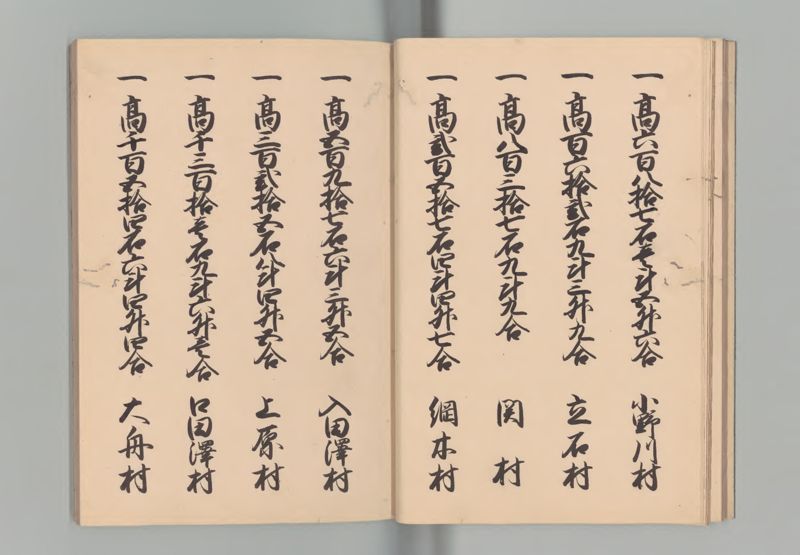 一 高六百八拾七石壱斗五升六合 小野川村
一 高百六拾弐石九斗三升九合 立石村
一 高八百三拾七石九斗九合 関村
一 高弐百五拾七石四斗四升七合 綱木村
一 高五百九拾七石六斗三升五合 入田澤村
一 高三百弐拾五石八斗四升五合 上原村
一 高千三百拾壱石九斗六升壱合 口田澤村
一 高千百五拾四石六斗四升四合 大舟村